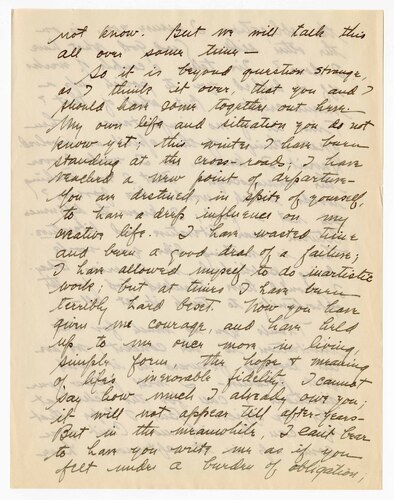 not know. But we will talk this
all over some time—
So it is beyond question strange,
as I think it over, that you and I
should have come together out here.
My own life and situation you do not
know yet; this winter I have been
standing at the cross-roads; I have
reached a new point of departure—
You are destined in spite of yourself,
to have a deep influence on my
creative life. I have wasted time
and been a good deal of a failure;
I have allowed myself to do inartistic
work; but at times I have been
terribly hard beset. Now you have
given me courage, and have held
up to me once more in living,
simple form, the hope & meaning
of life's inexorable fidelity. I cannot
say how much I already owe you;
it will not appear till after-years—
But in the meanwhile, I can't bear
to have you write me as if you
felt under a burden of obligation,